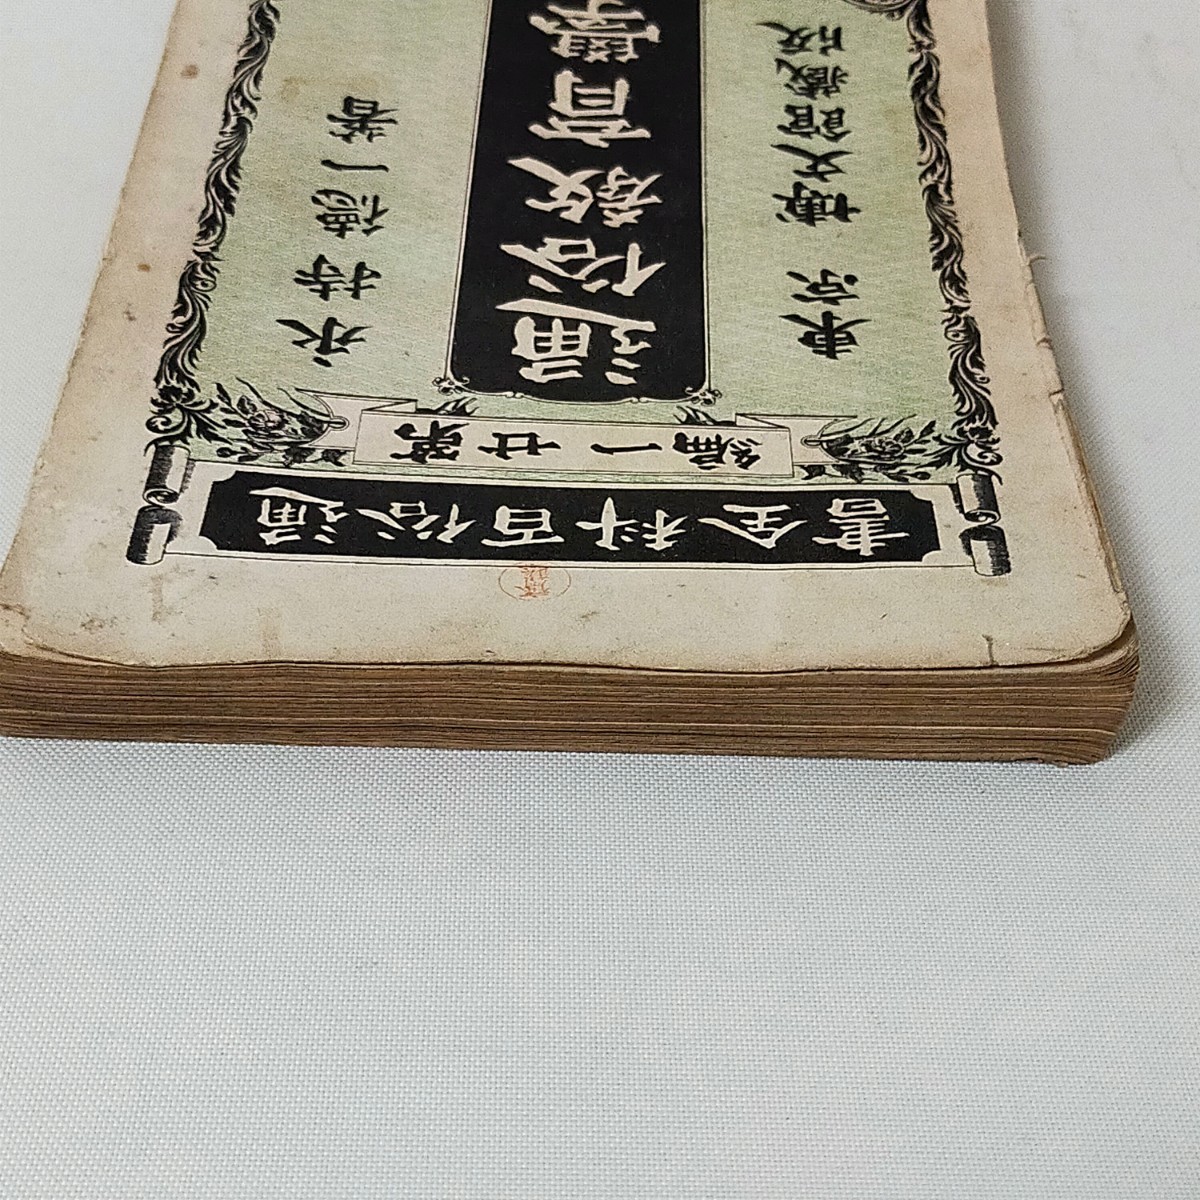 通俗百科全書
第廿一編
永持德一著
通俗教育學
東京 博文館藏版